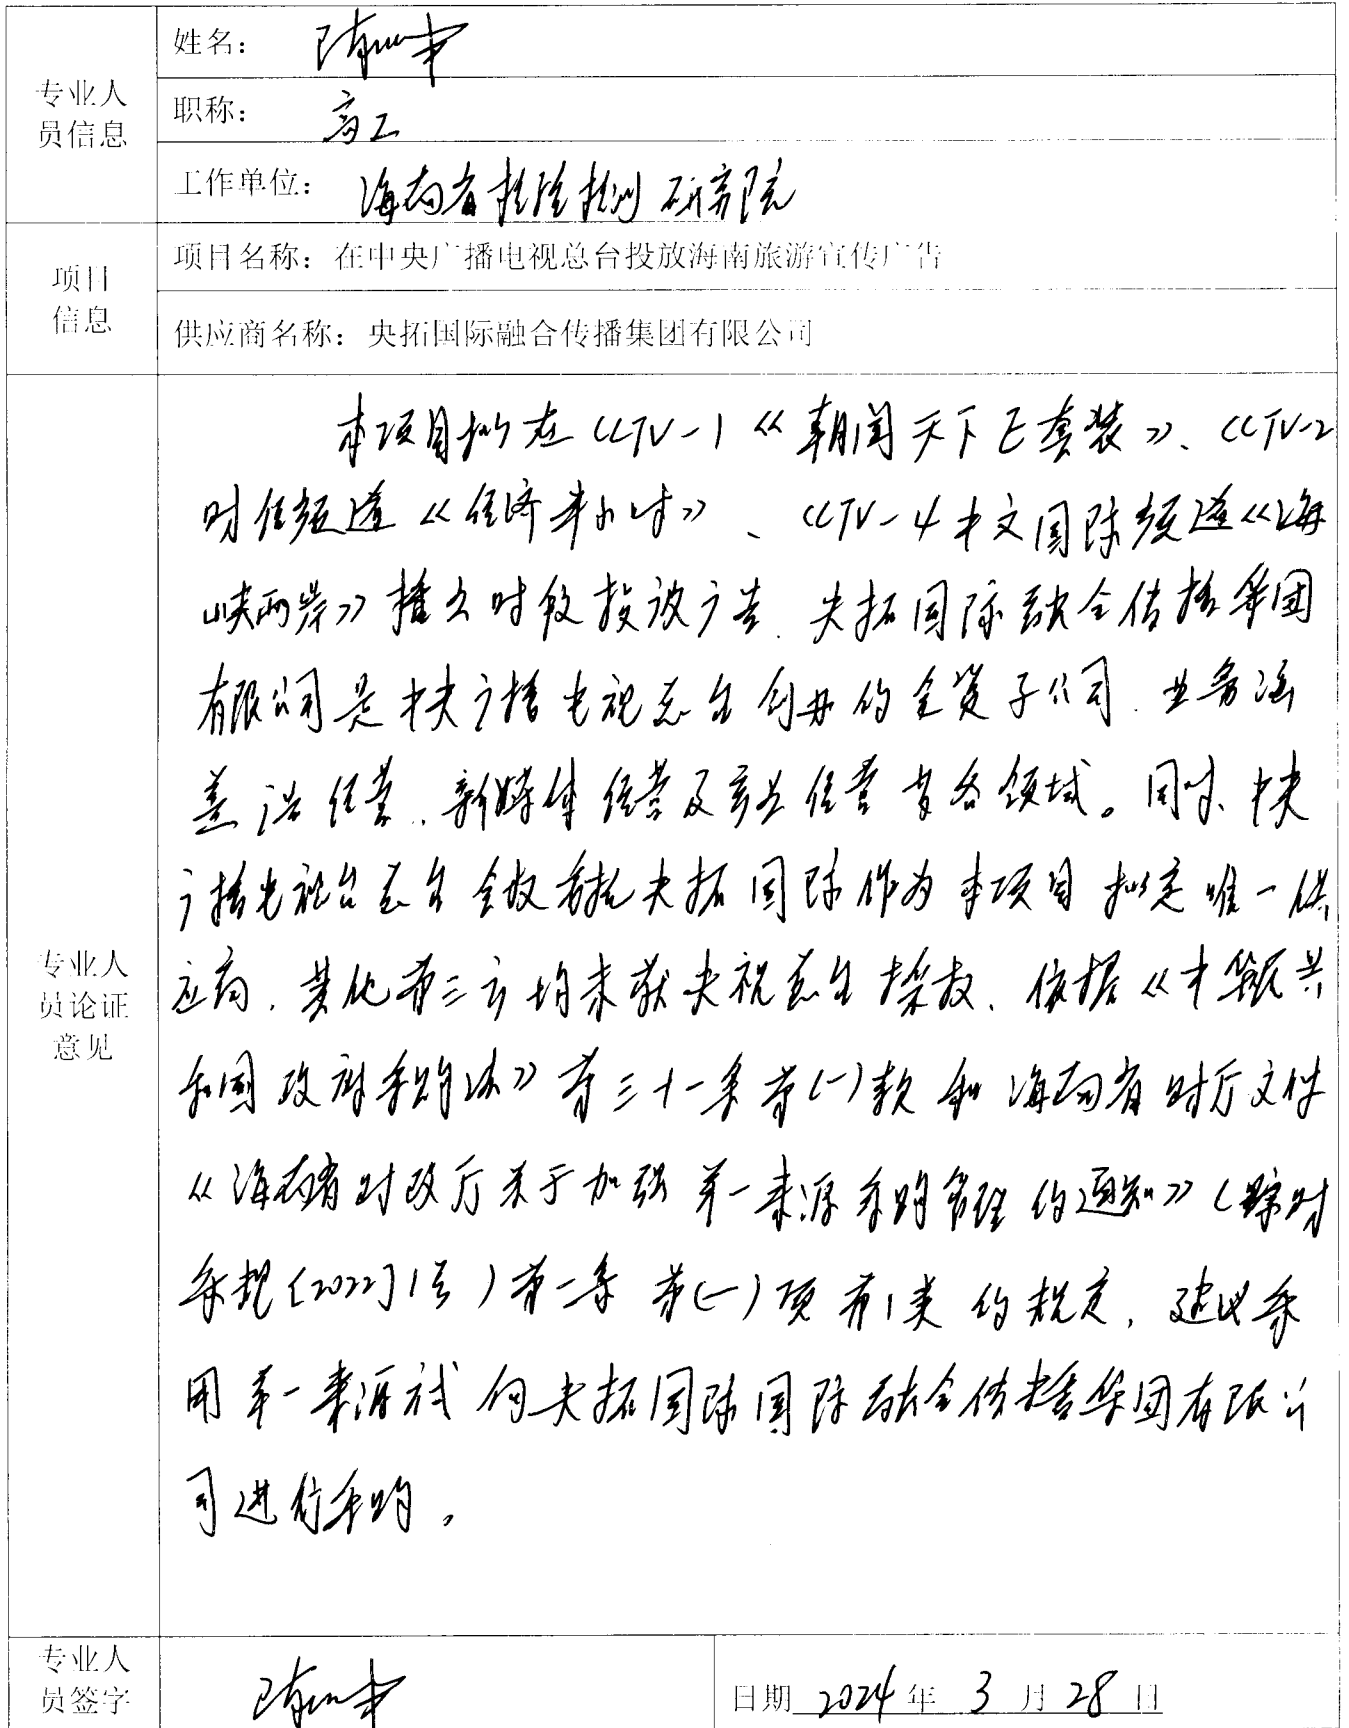 专业人员信息
姓名：
职称：高工
工作单位：海南省检验检测研究院
项目信息
项目名称：在中央广播电视总台投放海南旅游宣传广告
供应商名称：央拓国际融合传播集团有限公司
专业人员论证意见
本项目拟在CCTV-1《朝闻天下E套装》、CCTV-2
财经频道《经济半小时》、CCTV-4中文国际频道《海
峡两岸》播出时段投放广告.央拓国际融合传播集团
有限公司是中央广播电视总台创办的全资子公司.业务涵
盖广告经营.新媒体经营及产业经营等各领域。同时、中央
广播电视台总台全权委托央拓国际作为本项目拟定唯一供
应商.其他第三方均未获央视总台授权、依据《中华人民共
和国政府采购法》第三十一条第(一)款和海南省财厅文件
《海南省财政厅关于加强单一来源采购管理的通知》(琼财
采规[2022]1号)第二条第(一)项第1类的规定,建议采
用单一来源式向央拓国际国际融合传播集团有限公
司进行采购。
专业人员签字
日期 2024年3月28日